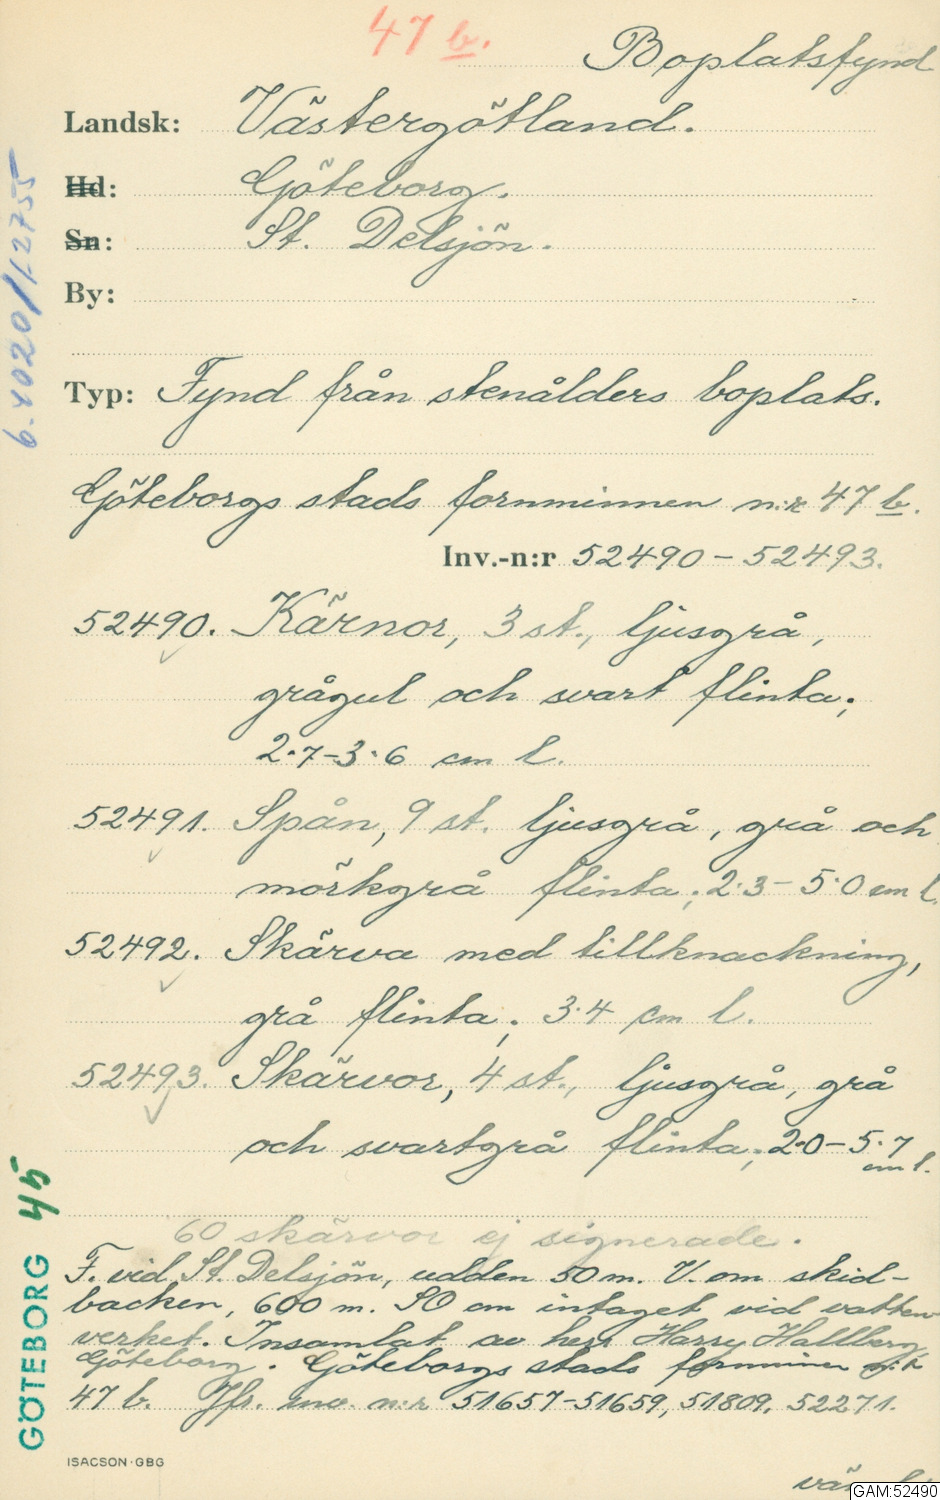 47 b.
Boplatsfynd
Landsk: Västergötland.
Hd: Göteborg.
Sn: St. Delsjön.
By:
6.4020/1-2755
Typ: Fynd från stenålders boplats.
Göteborgs stads fornminnen n:r 47 b.
Inv.-n:r 52490-52493.
52490. Kärnor, 3 st., ljusgrå,
grågul och svart flinta;
2.7-3.6 cm l.
52491. Spån, 9 st. ljusgrå, grå och
mörkgrå flinta; 2.3-5.0 cm l.
52492. Skärva med tillknackning,
grå flinta; 3.4 cm l.
52493. Skärvor, 4 st., ljusgrå, grå
och svartgrå flinta; 2.0-5.7
cm l.
60 skärvor ej signerade.
F. vid St. Delsjön, udden 50 m. V. om skid-
backen, 600 m. SO om intaget vid vatten-
verket. Insamlat av herr Harry Hallberg,
Göteborg. Göteborgs stads fornminnen n:r
47 b. Jfr. inv. n:r 51657-51659, 51809, 52271.
GÖTEBORG 45
ISACSON·GBG
GAM:52490